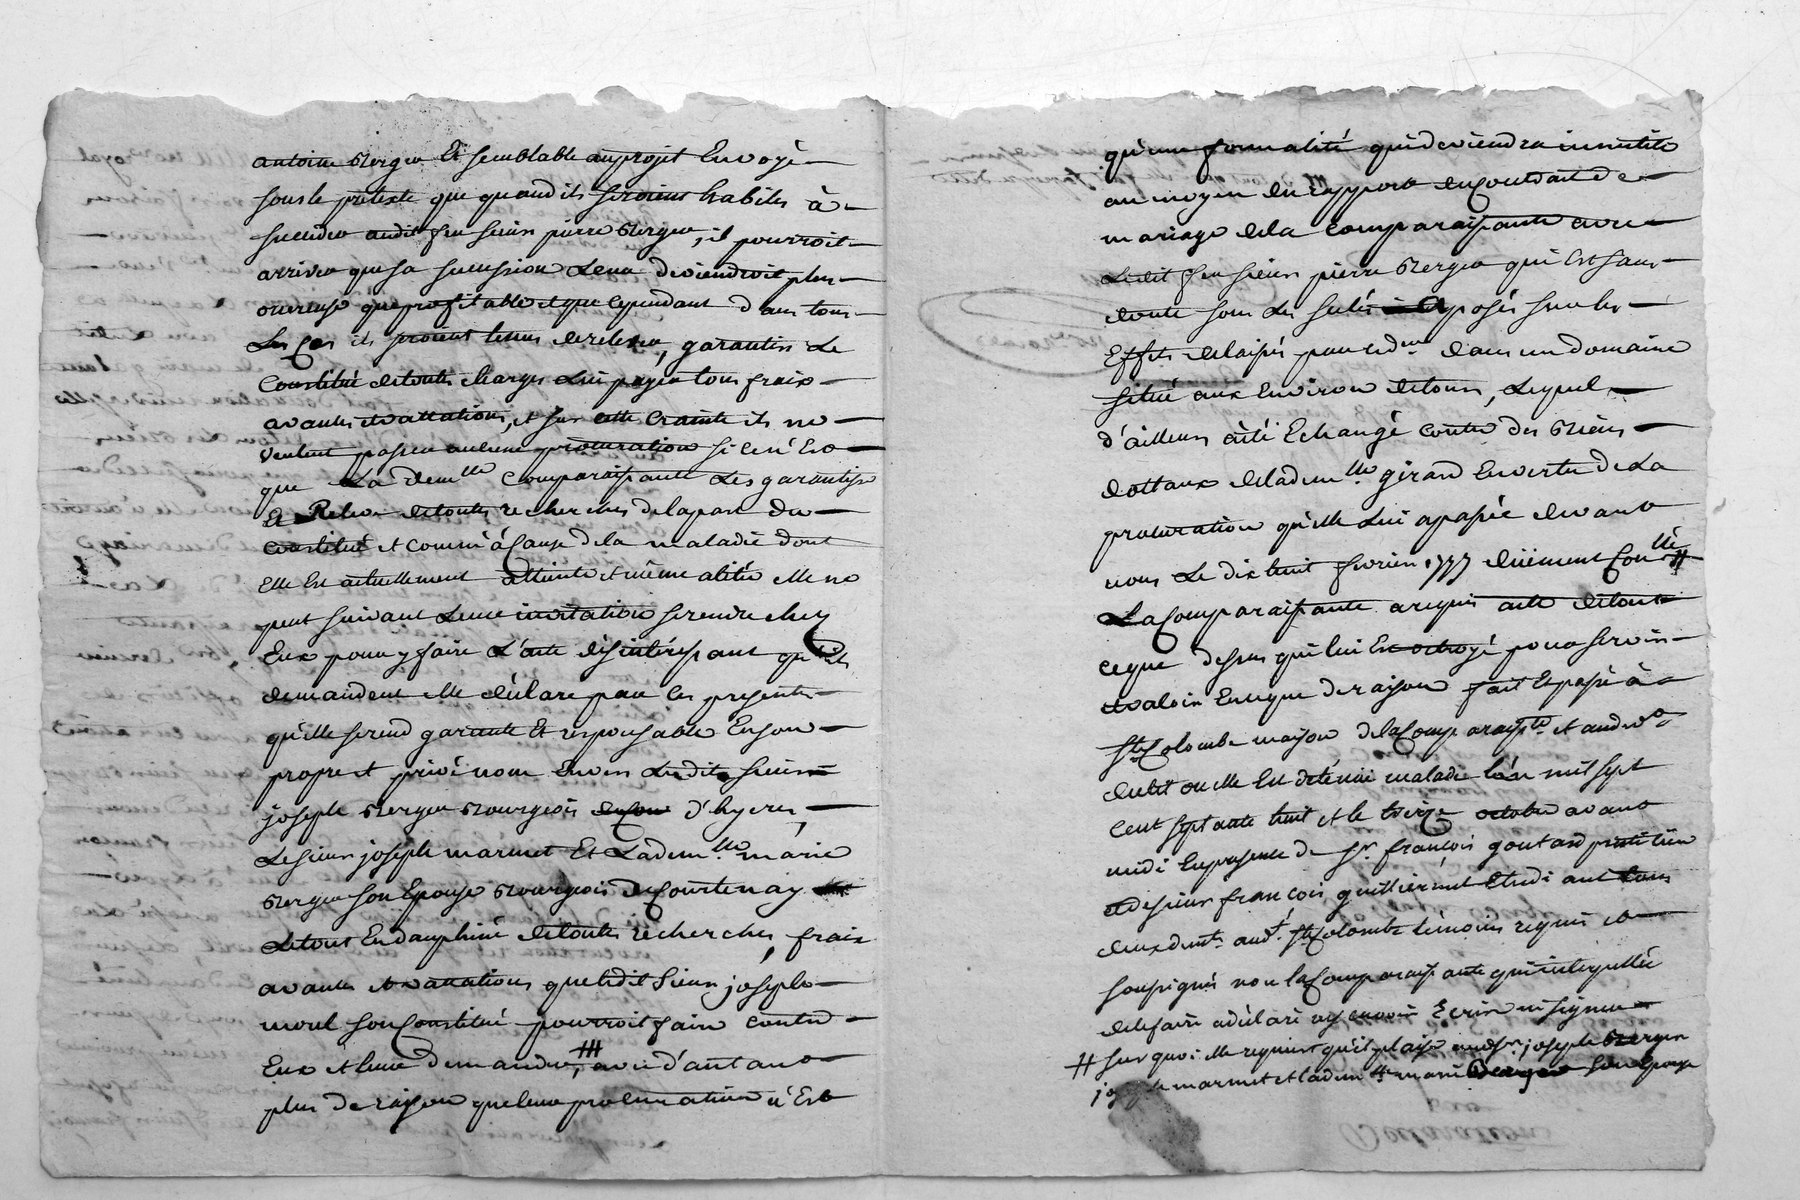 antoine Berger Et semblable au projet Envoyé
sous le prétexte que quand ils seroient habiles à
succéder audit feu sieur pierre Berger, il pourroit
arriver que sa succession Leur deviendroit plus
onéreuse que profitable et que cependant dans tous
Les Cas ils seroient tenus de relever, garantir Le
Constitué de toutes charges Lui payer tous fraix
avances et vaccations, et sur cette Crainte ils ne
veulent passer aucune procuration si ce n'Est
que La dem.lle Comparaissante Les garantisse
Et Releve de toutes recherches de la part du
Constitué et comm'à Cause de la maladie dont
Elle Est actuellement atteinte et même alitée elle ne
peut suivant Leur invitation se rendre chez
Eux pour y faire L'acte désintéressant qu'ils
demandent elle déclare par les presentes
qu'elle se rend garante Et responsable En son
propre et privé nom Envers Lesdits sieurs
joseph Berger Bourgeois d'hyeres,
Le sieur joseph marmet Et La dem.lle marie
Berger son Epouse Bourgeois de Courtenay
Le tout En dauphiné de toutes recherches, fraix
avances et vaccations que ledit Sieur joseph
morel son Constitué pourroit faire contre
Eux et leur demander, avec d'autant
plus de raison que leur procuration n'Est
qu'une formalité qui deviendra innutile
au moyen du rapport du Contrat de
mariage de la Comparaissante avec
Ledit feu sieur pierre Berger qui Est sans
doute sous Les scelés Aposés sur les
Effets délaissés par led.t dans un domaine
situé aux Environs de tours, Lequel
d'ailleurs a été Echangé contre des Biens
dottaux de la dem.lle girard En vertu de La
procuration qu'elle Lui a passée devant
nous Le dix huit fevrier 1777 düement Con.llé #
La Comparaissante a requis acte de tout
ce que dessus qui lui Est octroyé pour servir
et valoir En ce que de raison fait Et passé à
Ste Colombe maison de la Comparaiss.te et au devant
du lit ou elle Est détenüe malade l'an mil sept
cent septante huit et le treize octobre avant
midi En presence de Sr. françois goutard praticien
et de sieur françois guilliermet Etudiant tous
deux dem.ts aud.t Ste Colombe témoins requis et
soussignés non la Comparaissante qui interpellée
de le faire a déclaré ne savoir Ecrire ni signer
# sur quoi elle requiert qu'il plaise aud. sr. joseph Berger
joseph marmet et la dem.lle marie Berger son Epouse